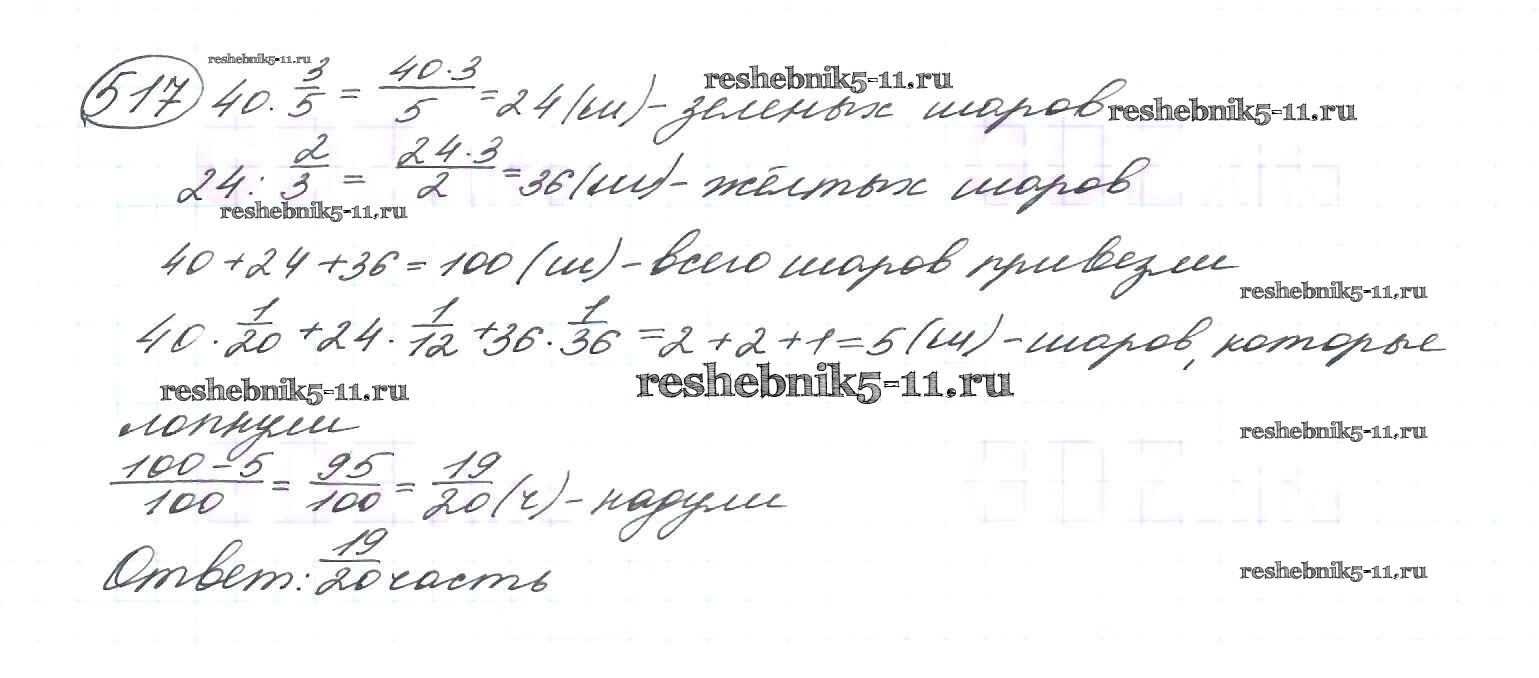 reshebnik5-11.ru
517 40 · 3/5 = 40·3/5 = 24 (ш) - зеленых шаров
reshebnik5-11.ru
reshebnik5-11.ru
24 : 2/3 = 24·3/2 = 36 (ш) - жёлтых шаров
reshebnik5-11.ru
40 + 24 + 36 = 100 (ш) - всего шаров привезли
reshebnik5-11.ru
40 · 1/20 + 24 · 1/12 + 36 · 1/36 = 2 + 2 + 1 = 5 (ш) - шаров, которые
reshebnik5-11.ru
reshebnik5-11.ru
лопнули
reshebnik5-11.ru
100 - 5/100 = 95/100 = 19/20 (ч) - надули
Ответ: 19/20 часть
reshebnik5-11.ru